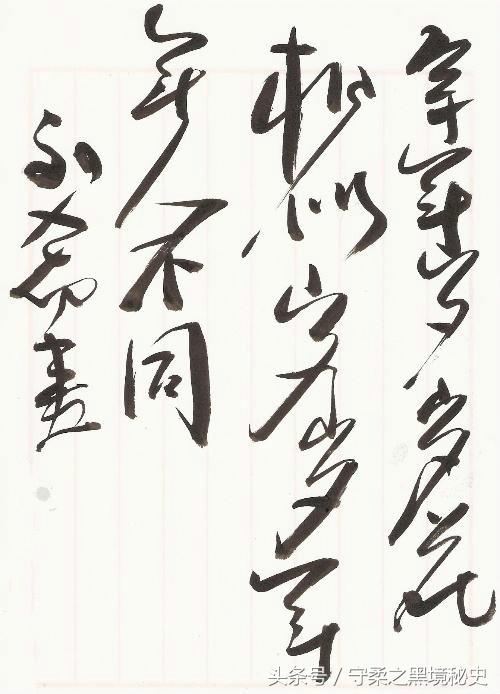 年年岁岁花
相似岁岁年
年不同
头条号 / 守柔之黑境秘史